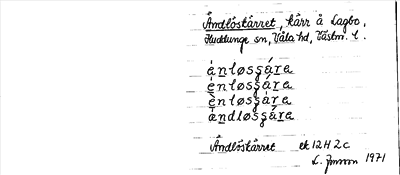 Ändlöskärret, kärr å Lagbo,
Huddunge sn, Våla hd, Västm. l.
ànløsşára
ènløsşára
ènløsşára
àndløsşára
Ändlöskärret ek 12H 2c
L. Jonsson 1971